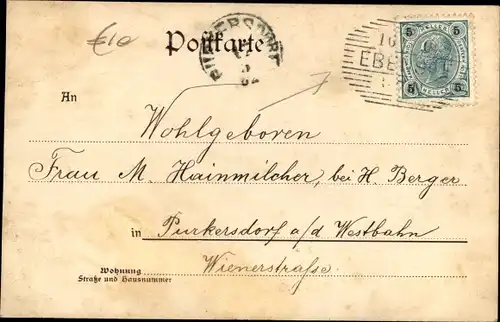 €10
Postkarte
5 HELLER 5
5 HELLER 5
An
Wohlgeboren
Frau M. Hainmilcher, bei H. Berger
in Purkersdorf a/d Westbahn
Wohnung
Straße und Hausnummer
Wienerstraße.